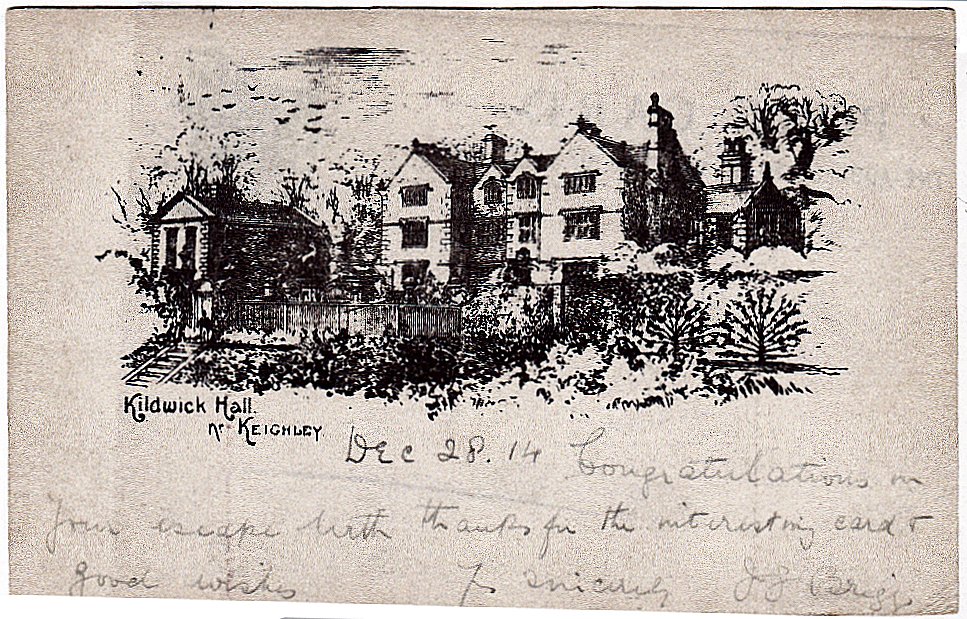 Kildwick Hall.
Nr KEIGHLEY.
Dec 28. 14 Congratulations on
your escape with thanks for the interesting card &
good wishes Yrs sincerely J J Brigg